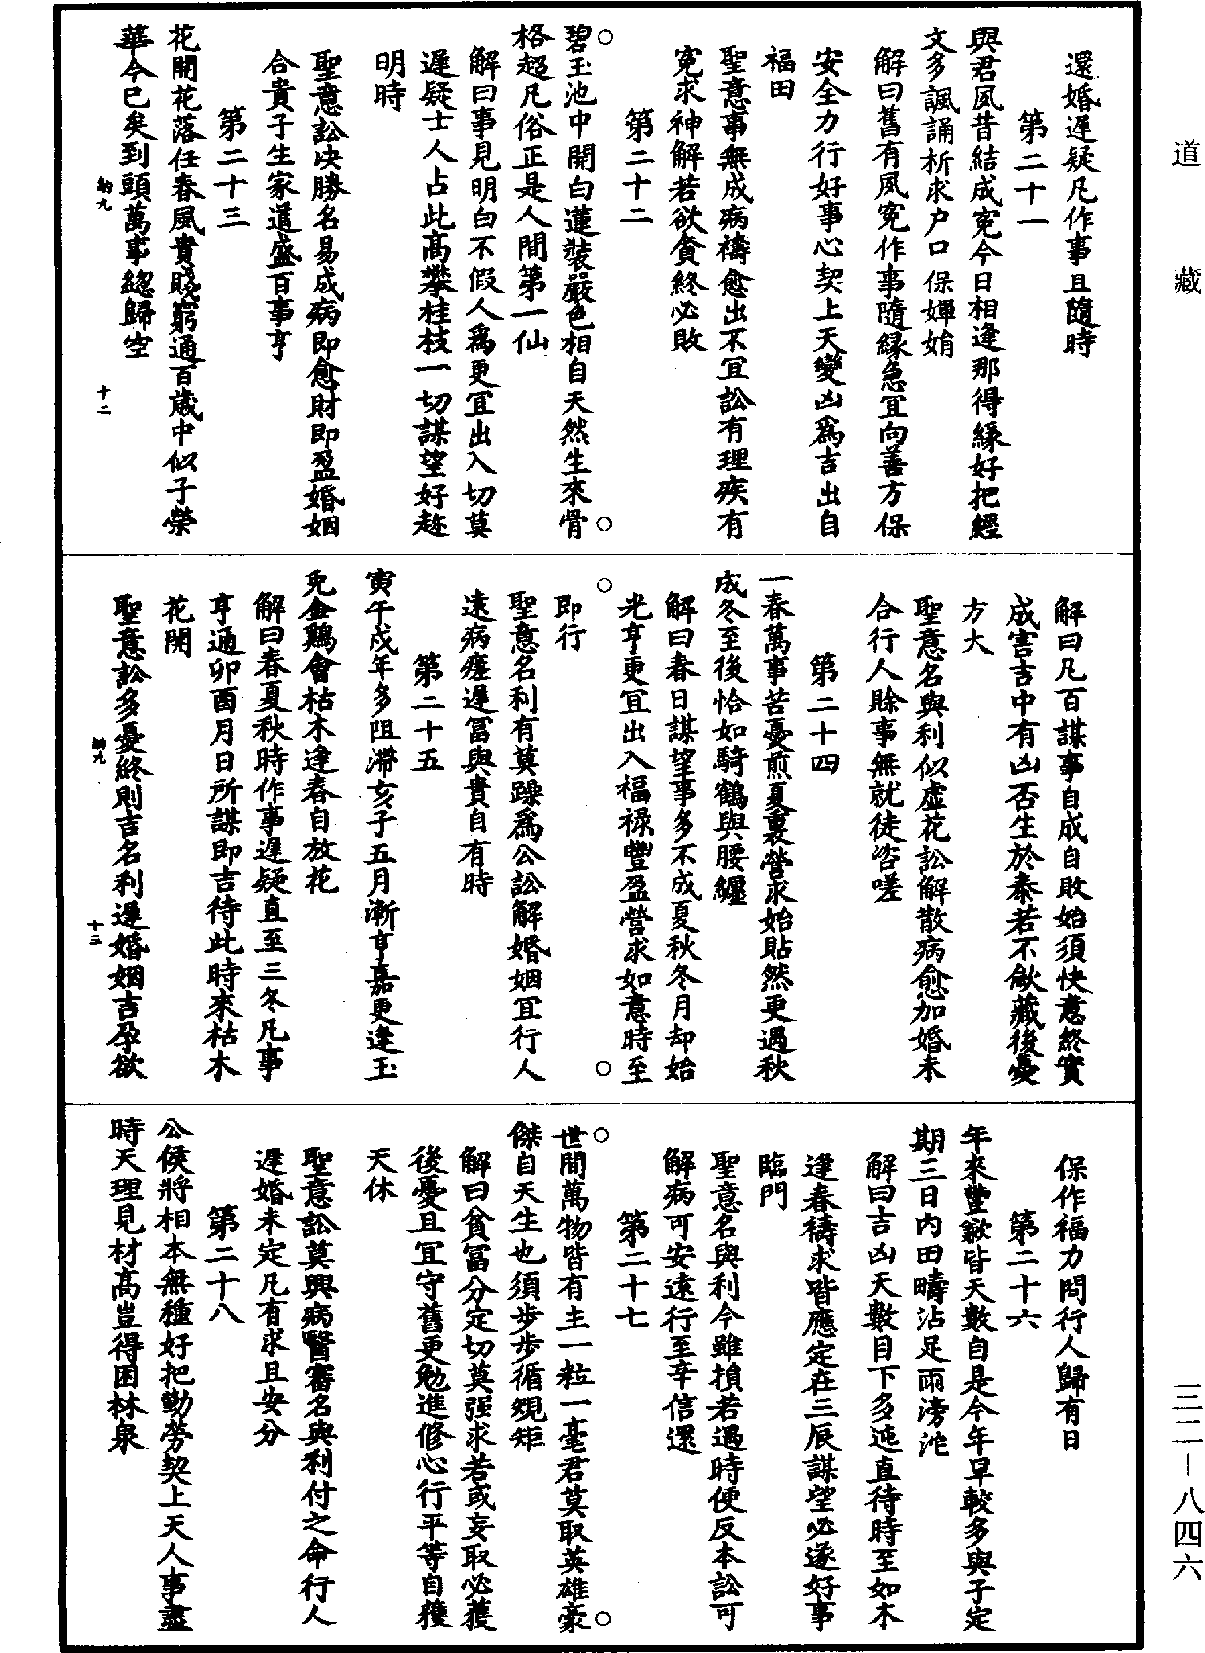 道藏
三二—八四六
還婚遲疑凡作事且隨時
第二十一
與君夙昔結成寃今日相逢那得緣好把經
文多諷誦析求户口保嬋娟
解曰舊有夙寃作事隨緣急宜向善方保
安全力行好事心契上天變凶為吉出自
福田
聖意事無成病禱愈出不宜訟有理疾有
寃求神解若欲貪終必敗
第二十二
碧玉池中開白蓮裝嚴色相自天然生來骨
格超凡俗正是人間第一仙
解曰事見明白不假人為更宜出入切莫
遲疑士人占此高攀桂枝一切謀望好趂
明時
聖意訟决勝名易成病即愈財即盈婚姻
合貴子生家道盛百事亨
第二十三
花開花落任春風貴賤窮通百歲中似子榮
華今已矣到頭萬事總歸空
納九
十二
解曰凡百謀事自成自敗始須快意終實
成害吉中有凶否生於泰若不歛藏後憂
方大
聖意名與利似虛花訟解散病愈加婚未
合行人賒事無就徒咨嗟
第二十四
一春萬事苦憂煎夏裏營求始貼然更遇秋
成冬至後恰如騎鶴與腰纏
解曰春日謀望事多不成夏秋冬月却始
光亨更宜出入福祿豐盈營求如意時至
即行
聖意名利有莫躁為公訟解婚姻宜行人
遠病瘥遲冨與貴自有時
第二十五
寅午戌年多阻滯亥子五月漸亨嘉更逢玉
兎金鷄會枯木逢春自放花
解曰春夏秋時作事遲疑直至三冬凡事
亨通卯酉月日所謀即吉待此時來枯木
花開
聖意訟多憂終則吉名利遲婚姻吉孕欲
納九
十三
保作福力問行人歸有日
第二十六
年來豐歉皆天數自是今年旱較多與子定
期三日内田疇沾足雨滂沱
解曰吉凶天數目下多迍直待時至如木
逢春禱求皆應定在三辰謀望必遂好事
臨門
聖意名與利今雖損若遇時便反本訟可
解病可安遠行至辛信還
第二十七
世間萬物皆有主一粒一毫君莫取英雄豪
傑自天生也須步步循規矩
解曰貧冨分定切莫强求若或妄取必獲
後憂且宜守舊更勉進修心行平等自穫
天休
聖意訟莫興病醫審名與利付之命行人
遲婚未定凡有求且安分
第二十八
公侯將相本無種好把勤勞契上天人事盡
時天理見材高豈得困林泉